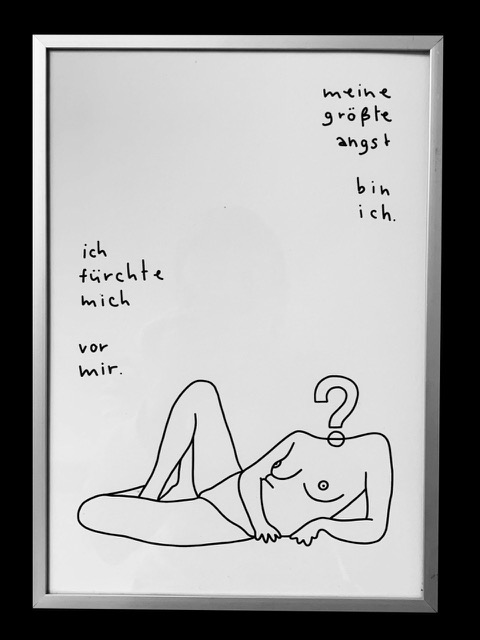 meine
größte
angst
bin
ich.
ich
fürchte
mich
vor
mir.
?